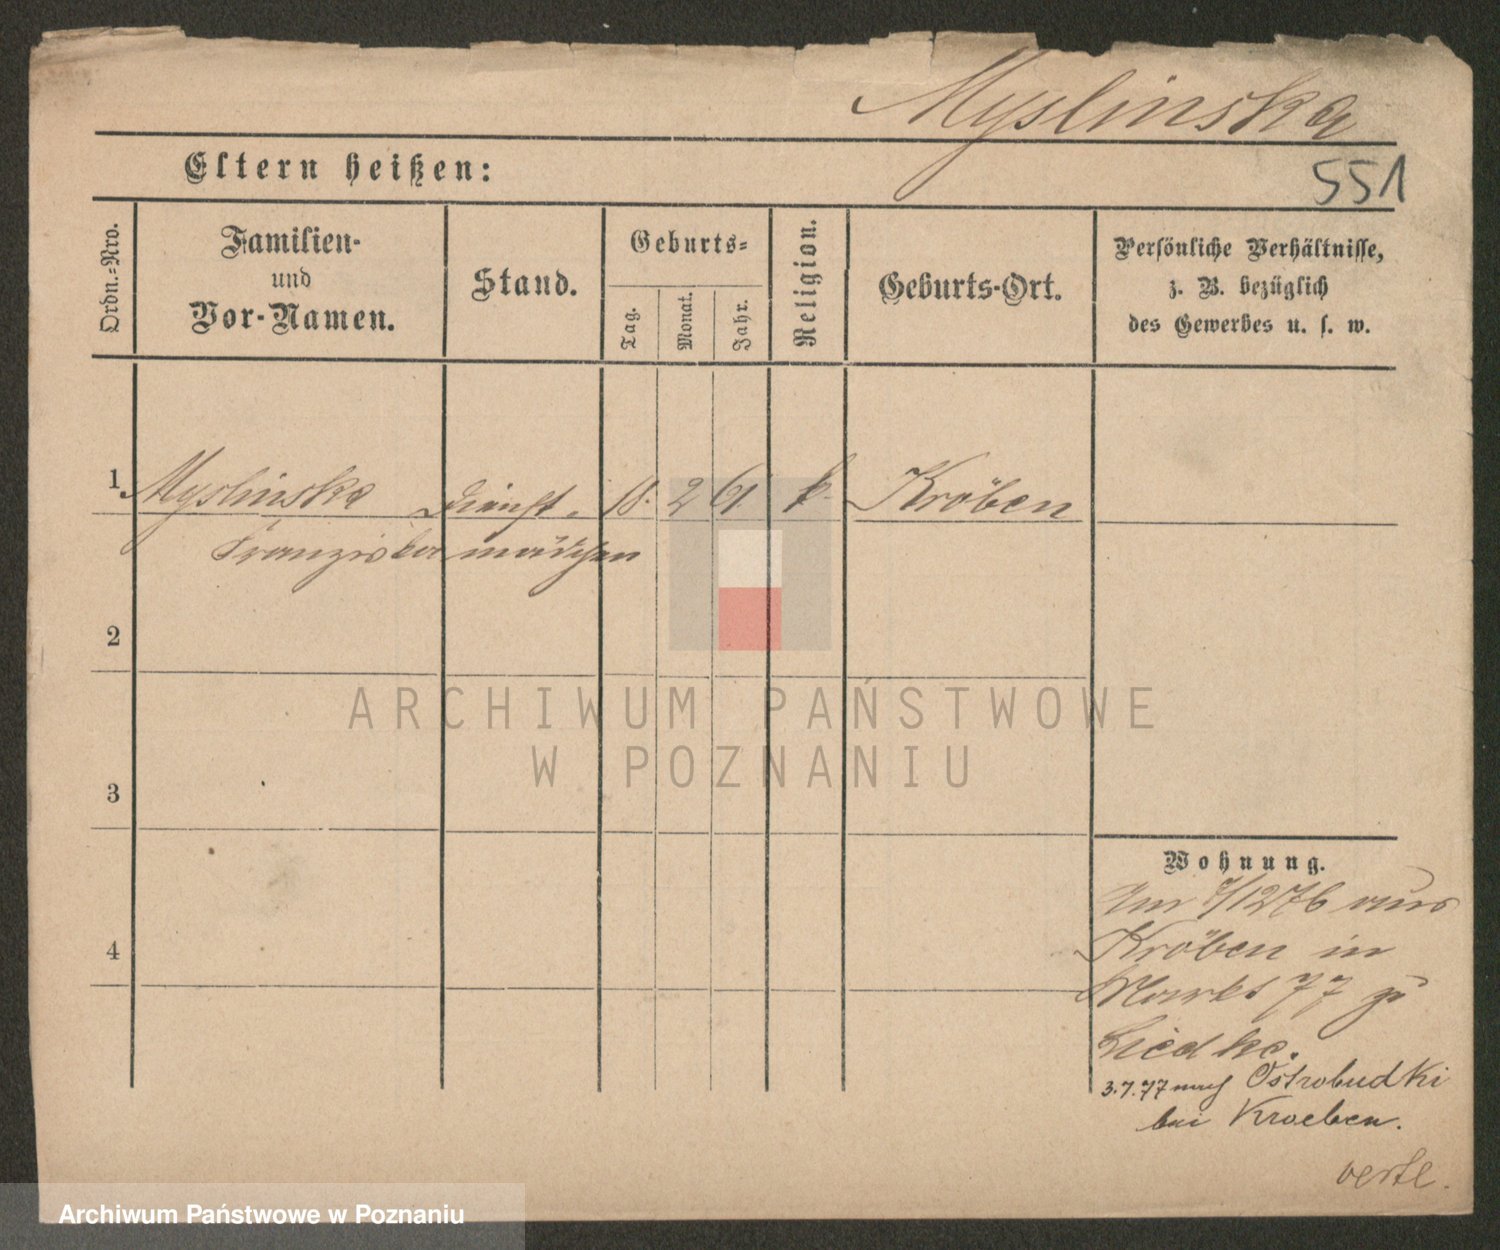 Myslinska
551
Eltern heißen:
Ordn.=Nro.
Familien-
und
Vor-Namen.
Stand.
Geburts=
Tag.
Monat.
Jahr.
Religion.
Geburts-Ort.
Persönliche Verhältnisse,
z. B. bezüglich
des Gewerbes u. s. w.
1 Myslinska Dienst- 18. 2 61. k. Kröben
Franziska mädchen
2
3
4
Wohnung.
Am 7/12 76 aus
Kröben in
Markt 77 zu
Liedke.
3.7.77 nach Ostrobudki
bei Kroeben.
verte.
ARCHIWUM PAŃSTWOWE
W POZNANIU
Archiwum Państwowe w Poznaniu